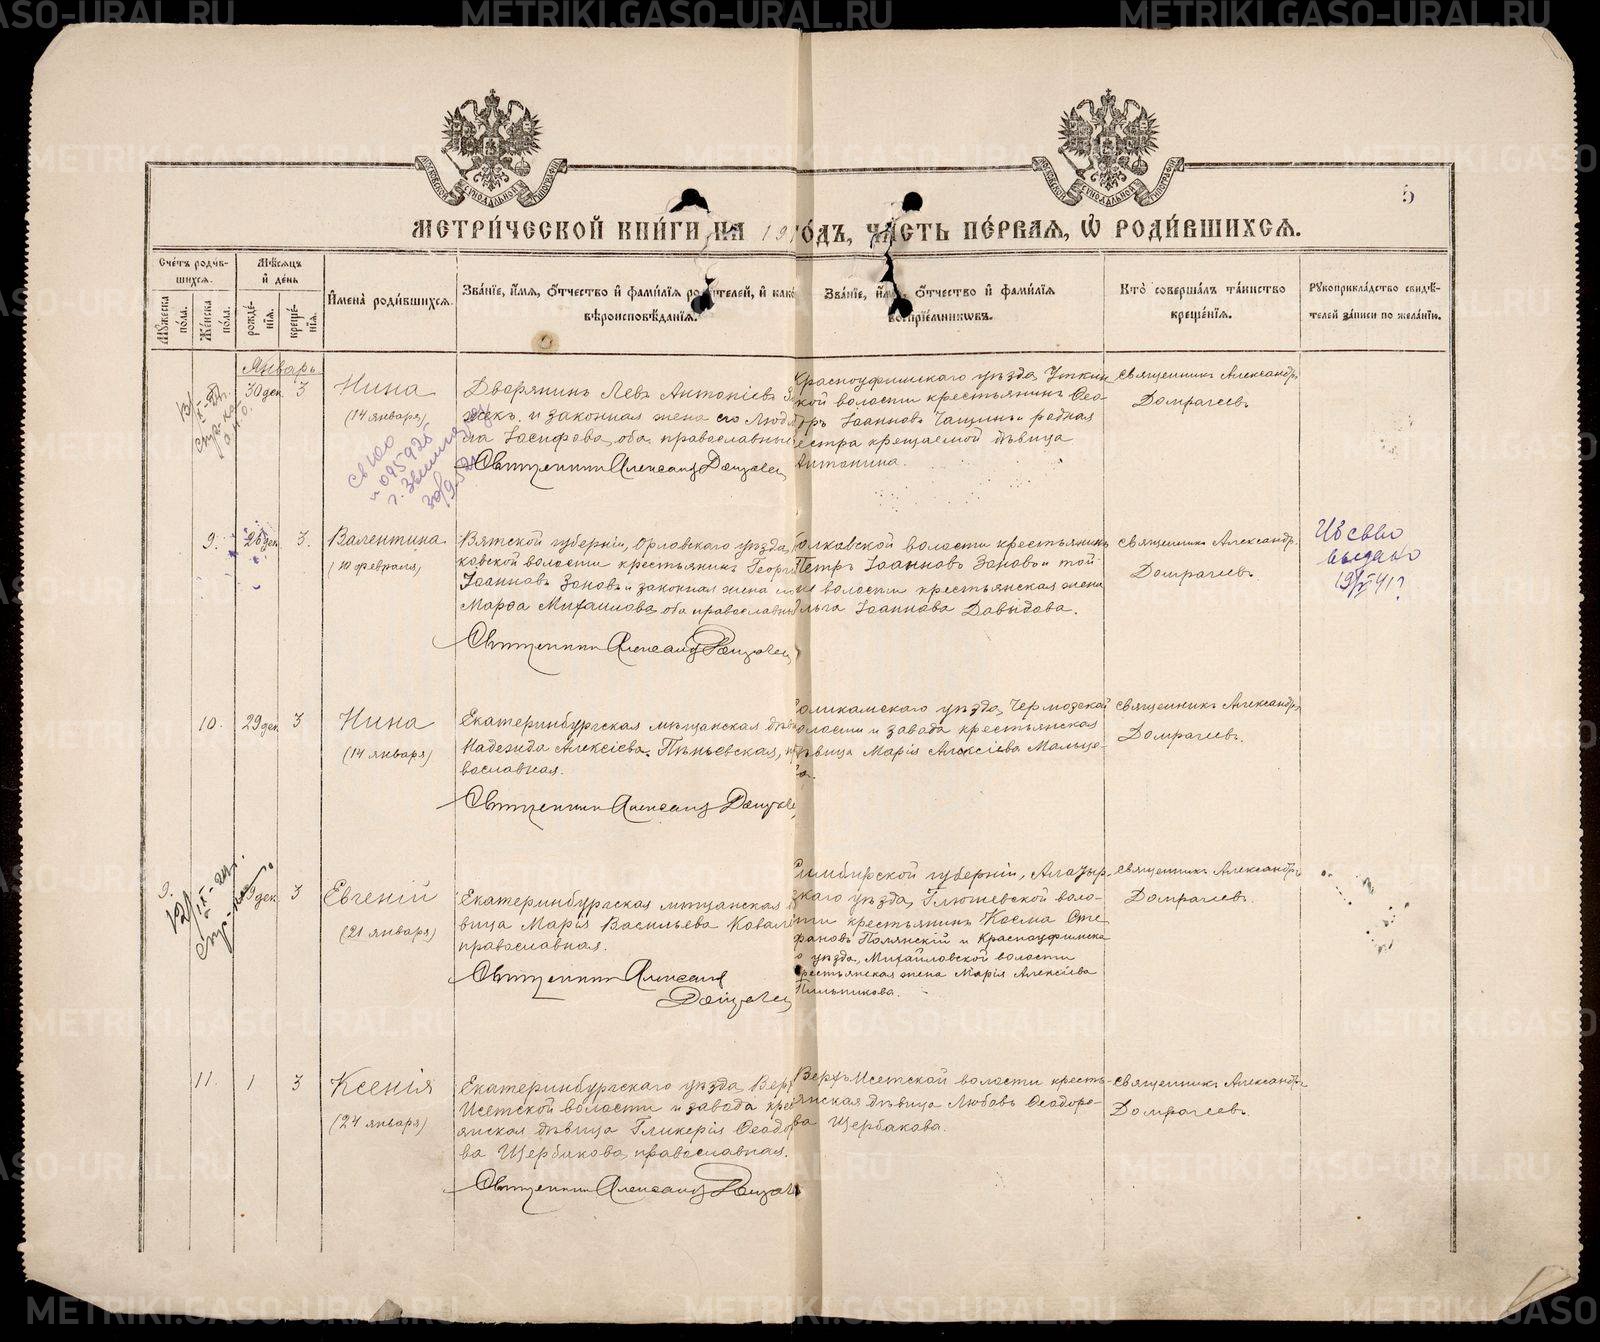 5
МЕТРИ́ЧЕСКОЙ КНИ́ГИ НА 19 ГО́ДЪ, ЧА́СТЬ ПЕ́РВАЯ, Ѡ РОДИ́ВШИХСЯ.
Сче́тъ роди́в-
шихся.
Му́жеска по́ла.
Же́нска по́ла.
Мѣ́сяцъ
и҆ де́нь
рожде́-
нїя.
креще́-
нїя.
И҆мена̀ роди́вшихся.
Зва́нїе, и҆́мя, ѻ҆́тчество и҆ фами́лїя роди́телей, и҆ како́
вѣроисповѣ́данїя.
Зва́нїе, и҆́мя, ѻ҆́тчество и҆ фами́лїя
воспрїе́мниковъ.
Кто̀ соверша́лъ та́инство
креще́нїя.
Рꙋкоприкла́дство свидѣ́-
телей за́писи по жела́нїю.
Январь
30 дек 3
Нина
(14 января)
Дворянинъ Левъ Антоніевъ
и законная жена его Людм
ла Іосифова, оба православные
Священникъ Александръ Домрачевъ
Красноуфимскаго уѣзда, Уткин
ской волости крестьянинъ Ѳео-
доръ Іоанновъ Чащинъ и родная
сестра крещаемой дѣвица
Антонина.
Священникъ Александръ
Домрачевъ
9. 26 дек 3.
Валентина
(10 февраля)
Вятской губерніи, Орловскаго уѣзда,
ковской волости крестьянинъ Георгі
Іоанновъ Зоновъ и законная жена его
Марѳа Михаилова, оба православные
Священникъ Александръ Домрачевъ
волости крестьянинъ
Петръ Іоанновъ Зоновъ и той
же волости крестьянская жена
Ольга Іоаннова Давыдова.
Священникъ Александръ
Домрачевъ.
выдано
10. 29 дек 3
Нина
(14 января)
Екатеринбургская мѣщанская дѣви
Надежда Алексіева Пѣньевская, пра
вославная.
Священникъ Александръ Домрачевъ
Соликамскаго уѣзда, Чермозской
волости и завода крестьянская
дѣвица Марія Алексіева Мальцо-
ва.
Священникъ Александръ
Домрачевъ.
9. 29 дек 3
Евгеній
(21 января)
Екатеринбургская мѣщанская дѣ
вица Марія Васильева Ковал
православная.
Священникъ Александръ
Домрачевъ
Симбирской губерніи, Алатыр
скаго уѣзда, воло-
сти крестьянинъ Косма Сте
фановъ Полянскій и Красноуфимска
го уѣзда, Михайловской волости
крестьянская жена Марія Алексіева
Пильникова.
Священникъ Александръ
Домрачевъ.
11. 1 3
Ксенія
(24 января)
Екатеринбургскаго уѣзда Верх
Исетской волости и завода крес
янская дѣвица Гликерія Ѳеодор
ва Щербакова, православная.
Священникъ Александръ Домрачевъ
Верхъ-Исетской волости кресть-
янская дѣвица Любовь Ѳеодоро-
ва Щербакова.
Священникъ Александръ
Домрачевъ.
METRIKI.GASO-URAL.RU